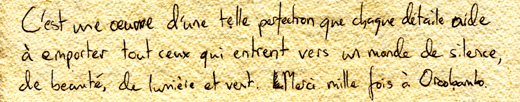 C'est une oeuvre d'une telle perfection que chaque détaile aide
à emporter tout ceux qui entrent vers un monde de silence,
de beauté, de lumière et vert. Merci mille fois à Orcobambo.